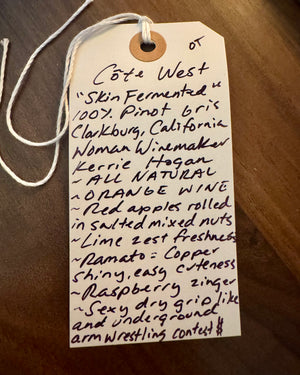 OT
Côte West
"Skin Fermented"
100% Pinot Gris
Clarkburg, California
Woman Winemaker
Kerrie Hogan
~ALL NATURAL
~ORANGE WINE
~Red apples rolled
in salted mixed nuts
~Lime zest freshness
~Ramato = Copper
shiny, easy cuteness
~Raspberry zinger
~Sexy dry grip like
and underground
arm wrestling contest $